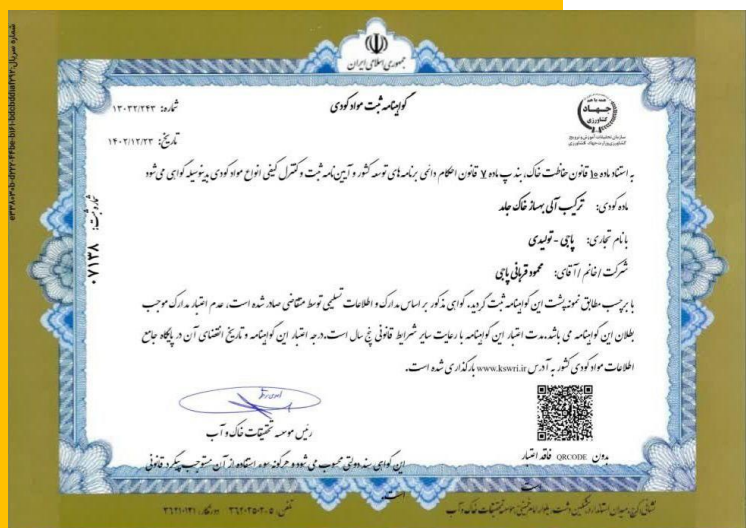 جمهوری اسلامی ایران
گواهینامه ثبت مواد کودی
شماره: ۱۳۰۳۲/۲۴۳
تاریخ: ۱۴۰۲/۱۲/۲۳
همه با هم
جهاد
کشاورزی
سازمان تحقیقات، آموزش و ترویج
کشاورزی وزارت جهاد کشاورزی
به استناد ماده ۱۵ قانون حفاظت خاک، بند پ ماده ۷ قانون احکام دائمی برنامه های توسعه کشور و آیین نامه ثبت و کنترل کیفی انواع مواد کودی بدینوسیله گواهی می شود
ماده کودی: ترکیب آلی بهساز خاک جامد
با نام تجاری: پاجی - تولیدی
شرکت / خانم / آقای: محمود قربانی پاجی
با برچسب مطابق نمونه پشت این گواهینامه ثبت گردید، گواهی مذکور بر اساس مدارک و اطلاعات تسلیمی توسط متقاضی صادر شده است، عدم اعتبار مدارک موجب
بطلان این گواهینامه می باشد، مدت اعتبار این گواهینامه با رعایت سایر شرایط قانونی پنج سال است، درجه اعتبار این گواهینامه و تاریخ انقضای آن در پایگاه جامع
اطلاعات مواد کودی کشور به آدرس www.kswri.ir بارگذاری شده است.
رئیس موسسه تحقیقات خاک و آب
بدون QRCODE فاقد اعتبار
است
این گواهی سند دولتی محسوب می شود و هرگونه سوء استفاده از آن مستوجب پیگرد قانونی
است.
نشانی: کرج، میدان استاندارد، مشکین دشت، بلوار امام خمینی، موسسه تحقیقات خاک و آب
تلفن: ۵-۳۶۲۰۲۵۰۲ دورنگار: ۳۶۲۱۰۱۲۱
شماره ثبت:
۰۷۱۳۸
شماره سریال: